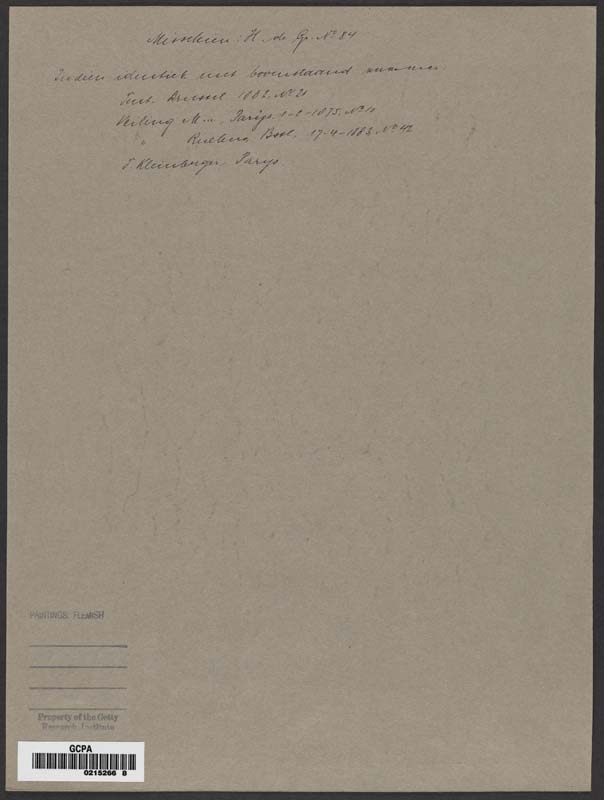 Misschien: H. de G. No 84
Indien identiek met bovenstaand nummer:
Tent. Brussel 1882, No 21
Veiling M..., Parijs 1-2-1875, No 10
" Berl. 17-4-1883, No 42
F. Kleinberger, Parijs
PAINTINGS, FLEMISH
Property of the Getty
Research Institute
GCPA
0215266 8